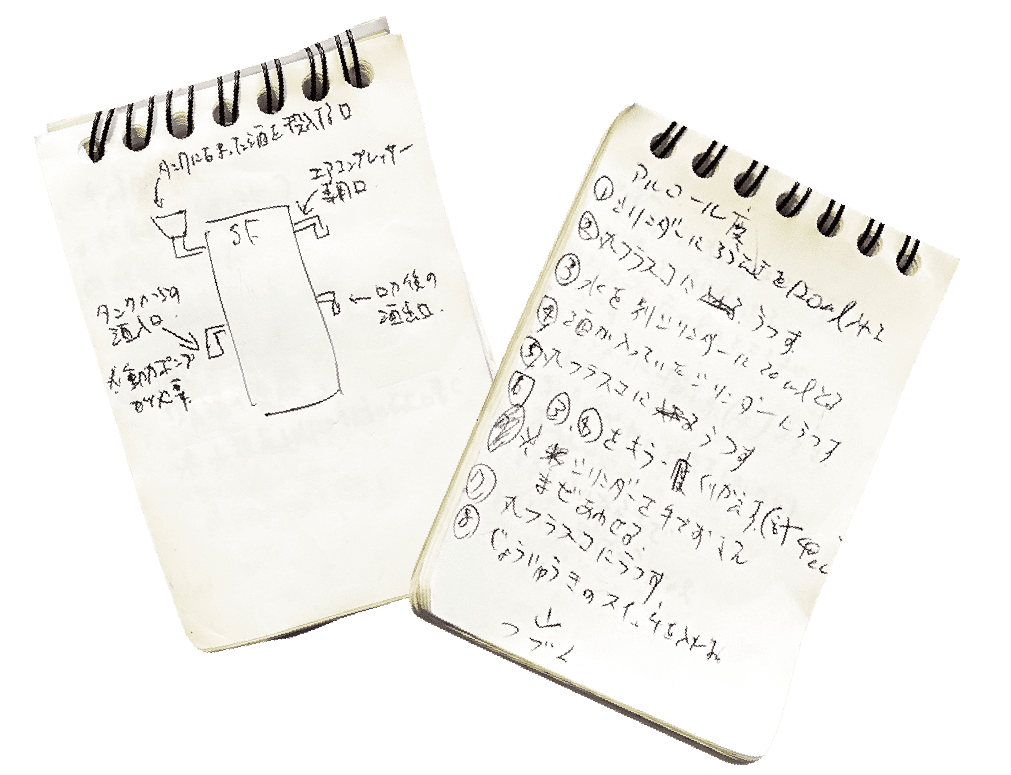 タンクにちまった酒を投入する口
エアコンプレッサー
専用口
SF
ロカ後の
酒出口.
タンクからの
酒入口.
※動力ポンプ
が必要.
アルコール度
①シリンダーにろ酒を120ml入れる
②丸フラスコに うつす.
③水を別シリンダーに20mlとる
④酒が入っていたシリンダーにうつす
⑤丸フラスコに うつす
⑥③,④をもう一度くりかえす(計40cc)
※シリンダーを手でおさえ
まぜあわせる.
⑦丸フラスコにうつす.
⑧じょうりゅうきのスイッチを入れる
↓
つづく